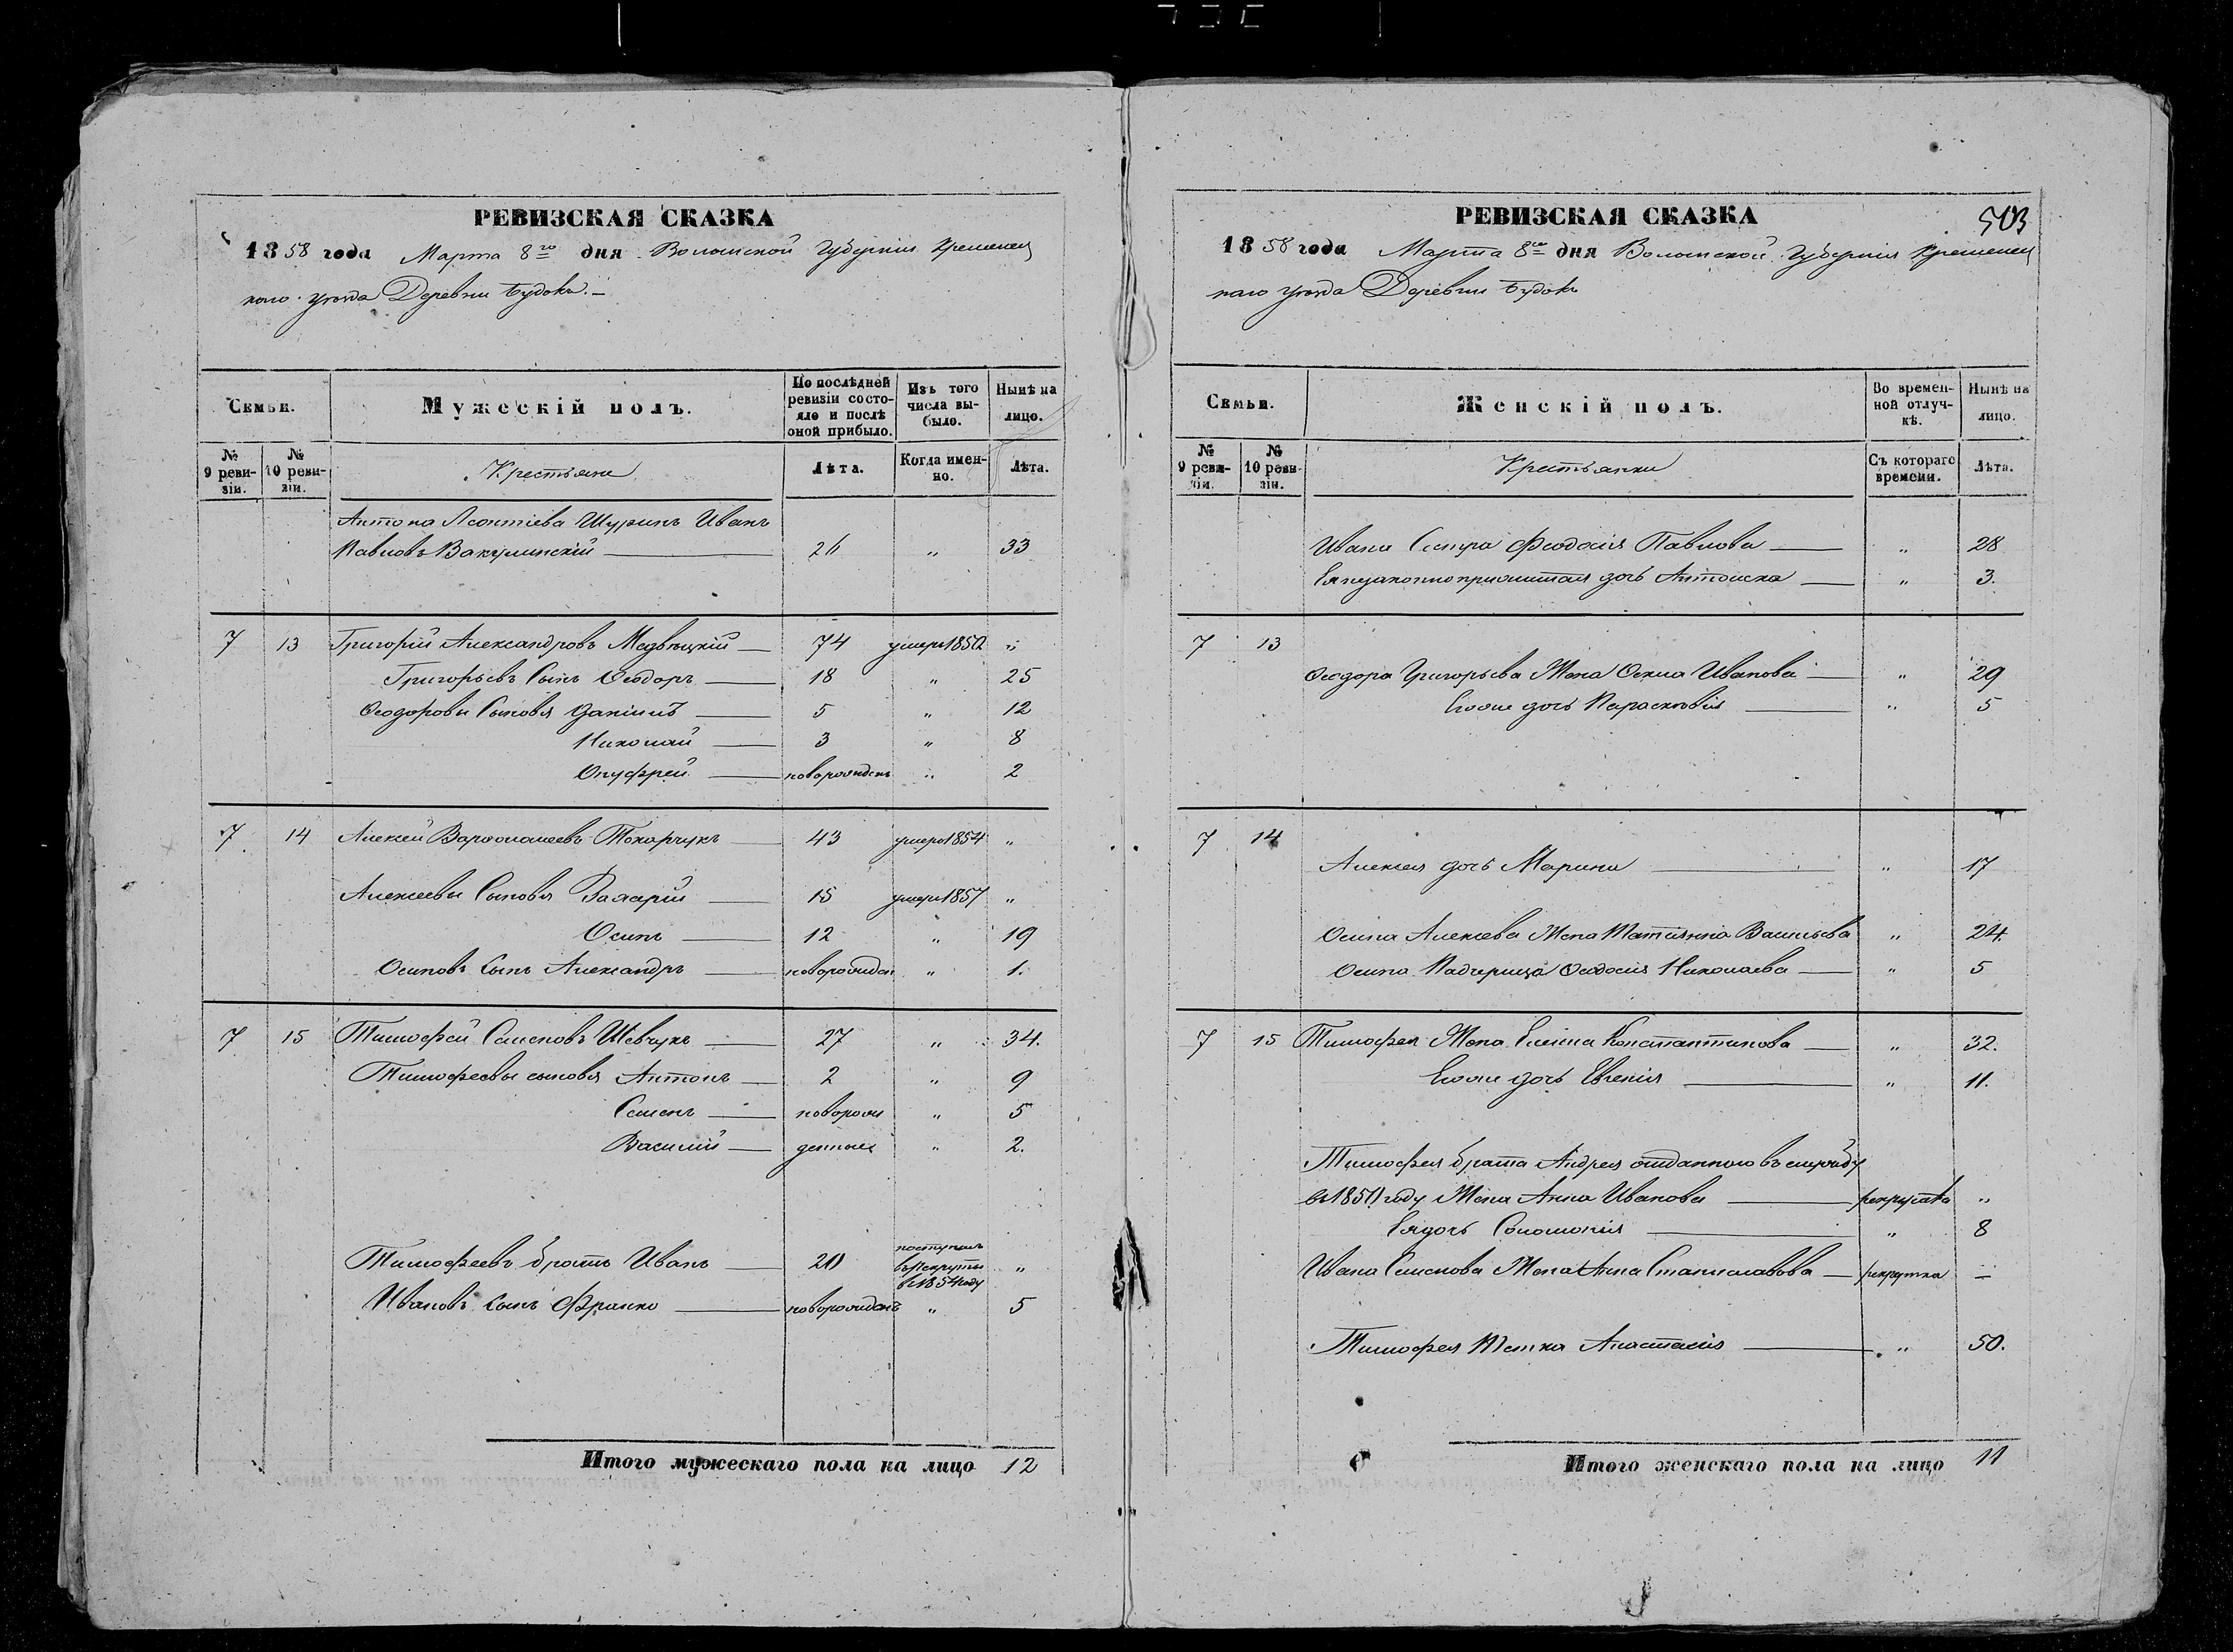 РЕВИЗСКАЯ СКАЗКА
1858 года Марта 8го дня Волынской Губернии Кременец
каго уезда Деревни Будокъ.
Семьи.
Мужескій полъ.
По послѣдней ревизіи состояло и послѣ оной прибыло.
Изъ того числа выбыло.
Нынѣ на лицо.
№ 9 ревизіи.
№ 10 ревизіи.
Крестьяне
Лѣта.
Когда именно.
Лѣта.
Антона Леонтіева Шуринъ Иванъ
Павловъ Вакулинскій 26 " 33
7 13 Григорій Александровъ Медвѣцкій 74 умеръ 1850 "
Григорьевъ Сынъ Ѳеодоръ 18 " 25
Ѳеодоровы Сыновья Даніилъ 5 " 12
Николай 3 " 8
Онуфрей новорожденъ " 2
7 14 Алексей Варфоломеевъ Токарчукъ 43 умеръ 1854 "
Алексеевы Сыновья Захарій 15 умеръ 1857 "
Осипъ 12 " 19
Осиповъ Сынъ Александръ новорожден " 1.
7 15 Тимофей Семеновъ Шевчукъ 27 " 34.
Тимофеевы сыновья Антонъ 2 " 9
Семенъ новорож " 5
Василій денные " 2.
Тимофеевъ братъ Иванъ 20 поступилъ
въ рекруты
въ 1854 году "
Ивановъ Сынъ Франко новорожденъ " 5
Итого мужескаго пола на лицо 12
РЕВИЗСКАЯ СКАЗКА
503
1858 года Марта 8го дня Волынской Губернии Кременец
каго уезда Деревни Будокъ
Семьи.
Женскій полъ.
Во временной отлучкѣ.
Нынѣ на лицо.
№ 9 ревизіи.
№ 10 ревизіи.
Крестьянки
Съ котораго времени.
Лѣта.
Ивана Сестра Феодосія Павлова " 28
Ея незаконноприжитая дочь Антонска " 3.
7 13
Ѳеодора Григорьева Жена Оксна Иванова " 29
Егоже дочь Параскевія " 5
7 14
Алексея дочь Марина " 17
Осипа Алексеева Жена Татіянна Васильева " 24.
Осипа Падчерица Ѳеодосія Николаева " 5
7 15 Тимофея Жена Елена Константинова " 32.
Егоже дочь Евгенія " 11.
Тимофея брата Андрея отданного въ службу
въ 1850 году Жена Анна Иванова рекрутка "
Ея дочь Соломонія " 8
Ивана Семенова Жена Анна Станиславова рекрутка "
Тимофея Тетка Анастасія " 50.
Итого женскаго пола на лицо 11